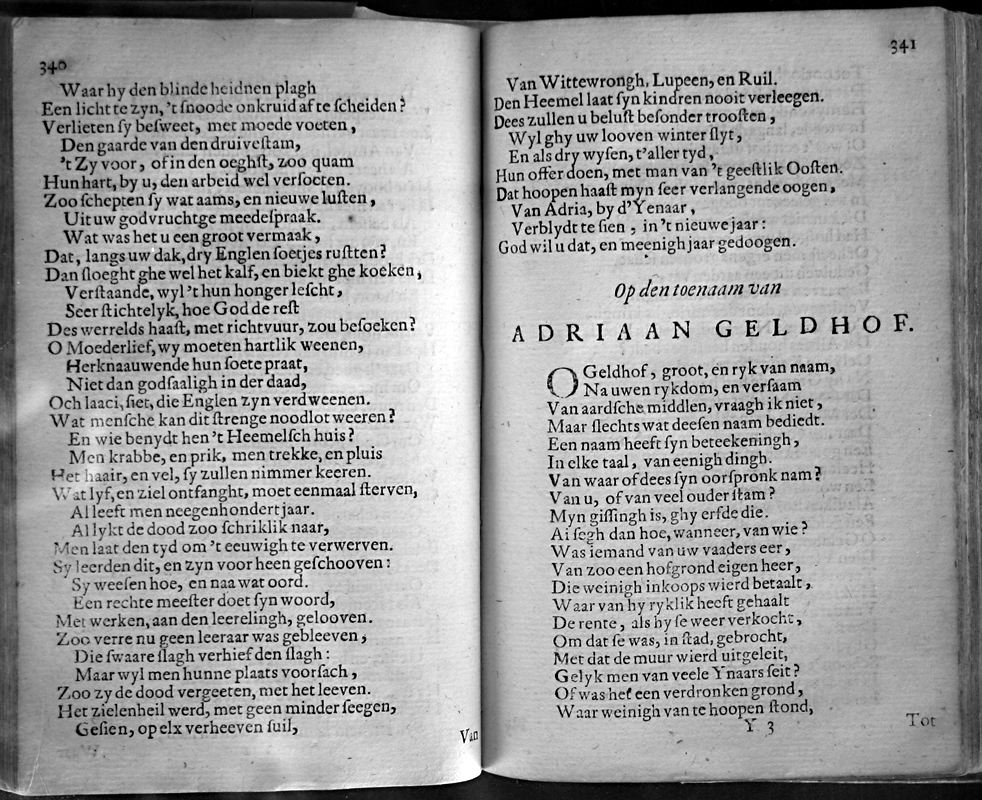 340
Waar hy den blinde heidnen plagh
Een licht te zyn, 't snoode onkruid af te scheiden?
Verlieten sy besweet, met moede voeten,
Den gaarde van den druivestam,
't Zy voor, of in den oeghst, zoo quam
Hun hart, by u, den arbeid wel versoeten.
Zoo schepten sy wat aams, en nieuwe lusten,
Uit uw godvruchtge meedespraak.
Wat was het u een groot vermaak,
Dat, langs uw dak, dry Englen soetjes rustten?
Dan sloeght ghe wel het kalf, en biekt ghe koeken,
Verstaande, wyl 't hun honger lescht,
Seer stichtelyk, hoe God de rest
Des werrelds haast, met richtvuur, zou besoeken?
O Moederlief, wy moeten hartlik weenen,
Herknauwende hun soete praat,
Niet dan godsaaligh in der daad,
Och laaci, siet, die Englen zyn verdweenen.
Wat mensche kan dit strenge noodlot weeren?
En wie benydt hen 't Heemelsch huis?
Men krabbe, en prik, men trekke, en pluis
Het haair, en vel, sy zullen nimmer keeren.
Wat lyf, en ziel ontfanght, moet eenmaal sterven,
Al leeft men neegenhondert jaar.
Al lykt de dood zoo schriklik naar,
Men laat den tyd om 't eeuwigh te verwerven.
Sy leerden dit, en zyn voor heen geschooven:
Sy weesen hoe, en naa wat oord.
Een rechte meester doet syn woord,
Met werken, aan den leerelingh, gelooven.
Zoo verre nu geen leeraar was gebleeven,
Die swaare slagh verhief den slagh:
Maar wyl men hunne plaats voorsach,
Zoo zy de dood vergeeten, met het leeven.
Het zielenheil werd, met geen minder seegen,
Gesien, op elx verheeven suil,
Van
341
Van Wittewrongh, Lupeen, en Ruil.
Den Heemel laat syn kindren nooit verleegen.
Dees zullen u belust besonder troosten,
Wyl ghy uw looven winter slyt,
En als dry wysen, t'aller tyd,
Hun offer doen, met man van 't geestlik Oosten.
Dat hoopen haast myn seer verlangende oogen,
Van Adria, by d'Yenaar,
Verblydt te sien, in 't nieuwe jaar:
God wil u dat, en meenigh jaar gedoogen.
Op den toenaam van
ADRIAAN GELDHOF.
O Geldhof, groot, en ryk van naam,
Na uwen rykdom, en versaam
Van aardsche middlen, vraagh ik niet,
Maar slechts wat deesen naam bediedt.
Een naam heeft syn beteekeningh,
In elke taal, van eenigh dingh.
Van waar of dees syn oorspronk nam?
Van u, of van veel ouder stam?
Myn gissingh is, ghy erfde die.
Ai segh dan hoe, wanneer, van wie?
Was iemand van uw vaaders eer,
Van zoo een hofgrond eigen heer,
Die weinigh inkoops wierd betaalt,
Waar van hy ryklik heeft gehaalt
De rente, als hy se weer verkocht,
Om dat se was, in stad, gebrocht,
Met dat de muur wierd uitgeleit,
Gelyk men van veele Ynaars seit?
Of was het een verdronken grond,
Waar weinigh van te hoopen stond,
Y 3
Tot